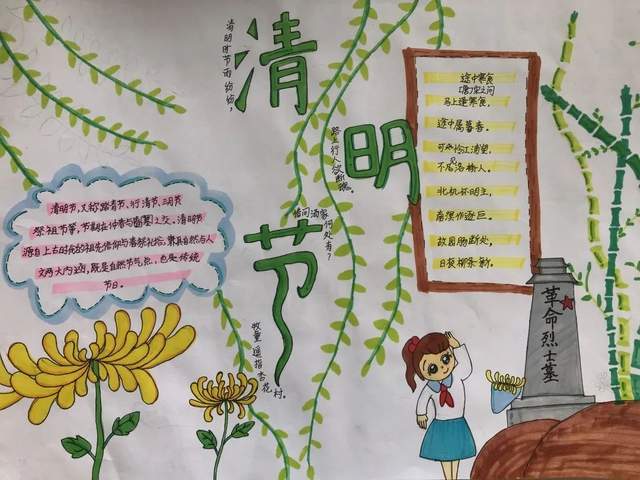 清明节
清明时节雨纷纷，
路上行人欲断魂。
借问酒家何处有？
牧童遥指杏花村。
清明节，又称踏青节、行清节、三月节
祭祖节等，节期在仲春与暮春之交。清明节
源自上古时代的祖先信仰与春祭礼俗，兼具自然与人
文两大内涵，既是自然节气点，也是传统
节日。
途中寒食
（唐）宋之问
马上逢寒食，
途中属暮春。
可怜江浦望，
不见洛桥人。
北极怀明主，
南溟作逐臣。
故园肠断处，
日夜柳条新。
革命烈士墓